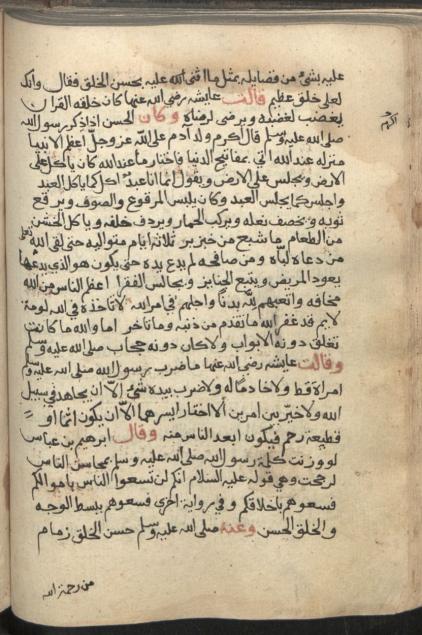 عليه بشئ من فضايله بمثل ما اثنى الله عليه بحسن الخلق فقال وانك
لعلى خلق عظيم قالت عايشه رضى الله عنها كان خلقه القران
يغضب لغضبه ويرضى لرضاه وكان الحسن اذا ذكر رسول الله
صلى الله عليه وسلم قال اكرم ولد ادم على الله عز وجل اعظم الانبيا
منزلة عند الله اتي بمفاتيح الدنيا فاختار ما عند الله كان ياكل على
الارض ويجلس على الارض ويقول انما انا عبد اكل كما ياكل العبد
واجلس كما يجلس العبد وكان يلبس المرقوع والصوف ويرقع
ثوبه ويخصف نعله ويركب الحمار ويردف خلفه وياكل الخشن
من الطعام ما شبع من خبز بر ثلاثة ايام متواليه حتى لقى الله تعالى
من دعاه لباه ومن صافحه لم يدع يده حتى يكون هو الذي يدعها
يعود المريض ويتبع الجنايز ويجالس الفقرا اعظم الناس من الله
مخافه واتعبهم لله بدنا واجلهم في امر الله لا تاخذه في الله لومة
لايم قد غفر الله ما تقدم من ذنبه وما تاخر اما والله ما كانت
تغلق دونه الابواب ولا كان دونه حجاب صلى الله عليه وسلم
وقالت عايشه رضى الله عنها ما ضرب رسول الله صلى الله عليه وسلم
امراة قط ولا خادما له ولا ضرب بيده شئ الا ان يجاهد في سبيل
الله ولا خير بين امرين الا اختار ايسرهما الا ان يكون اثما او
قطيعة رحم فيكون ابعد الناس منه وقال ابرهيم بن عباس
لو وزنت كلمة رسول الله صلى الله عليه وسلم بمحاسن الناس
لرجحت وهي قوله عليه السلام انكم لن تسعوا الناس باموالكم
فسعوهم باخلاقكم وفي رواية اخرى فسعوهم ببسط الوجه
والخلق الحسن وعنه صلى الله عليه وسلم حسن الخلق زمام
من رحمة الله